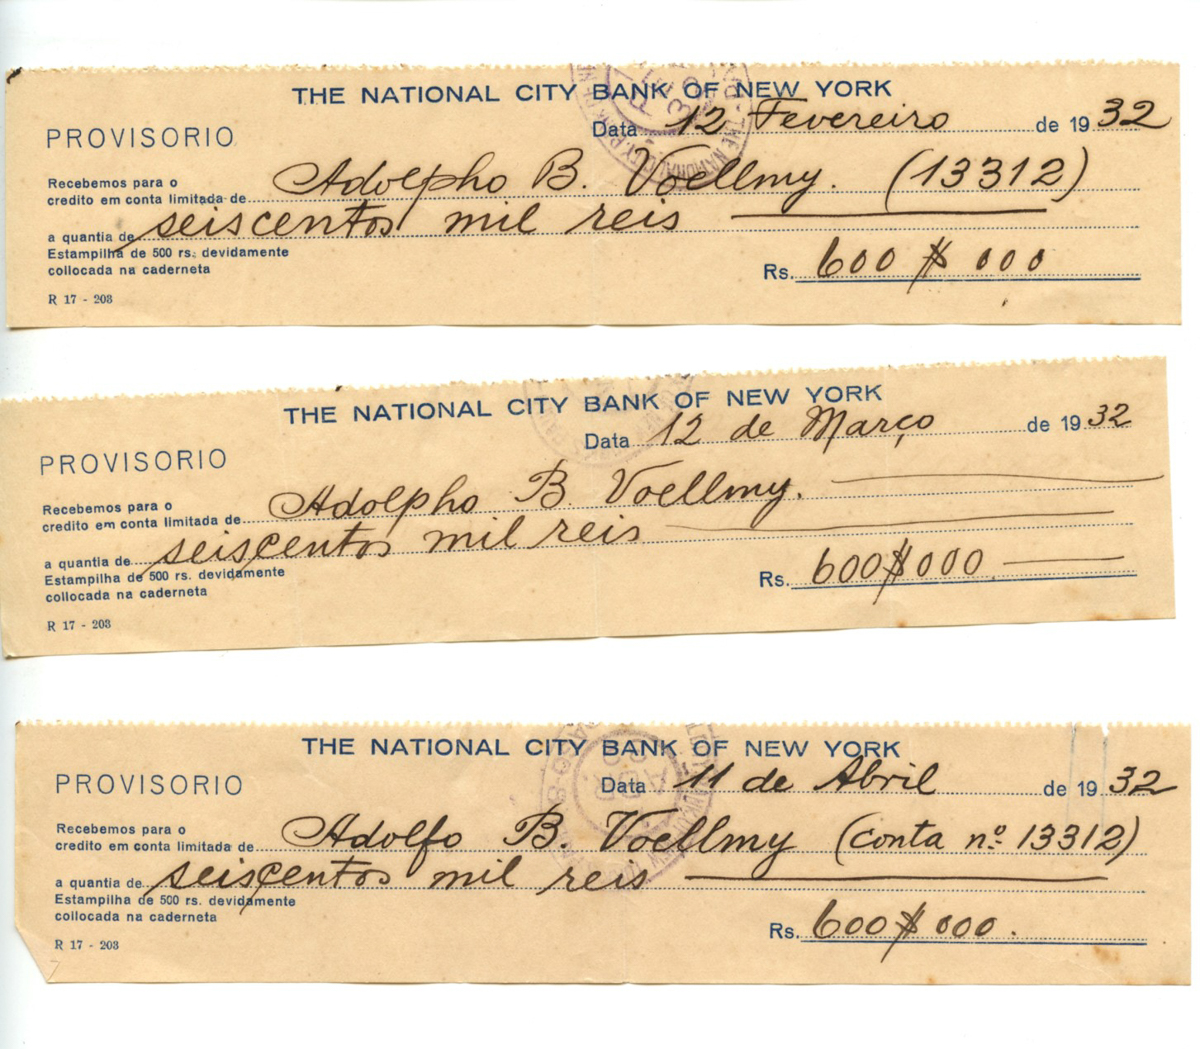 THE NATIONAL CITY BANK OF NEW YORK
PROVISORIO
Data 12 Fevereiro de 1932
Recebemos para o
credito em conta limitada de Adolpho B. Voellmy. (13312)
a quantia de seiscentos mil reis
Estampilha de 500 rs. devidamente
collocada na caderneta
Rs. 600$000
R 17 - 203
THE NATIONAL CITY BANK OF NEW YORK
Data 12 de Março de 1932
PROVISORIO
Recebemos para o
credito em conta limitada de Adolpho B. Voellmy.
a quantia de seiscentos mil reis
Estampilha de 500 rs. devidamente
collocada na caderneta
Rs. 600$000
R 17 - 203
THE NATIONAL CITY BANK OF NEW YORK
PROVISORIO
Data 11 de Abril de 1932
Recebemos para o
credito em conta limitada de Adolfo B. Voellmy (conta nº 13312)
a quantia de seiscentos mil reis
Estampilha de 500 rs. devidamente
collocada na caderneta
Rs. 600$000.
R 17 - 203